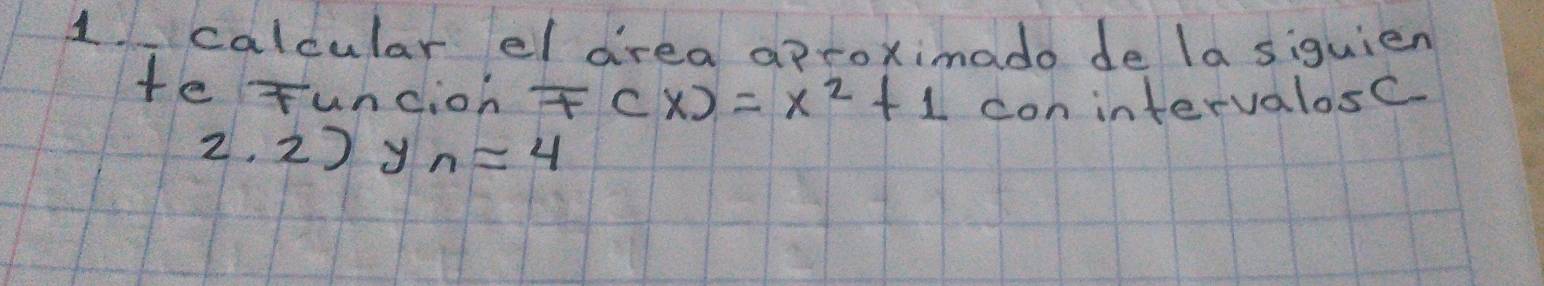 1.- calcular el área aproximado de la siguien
te Función F(x)=x²+1 con intervalos(-
2.2) y n=4